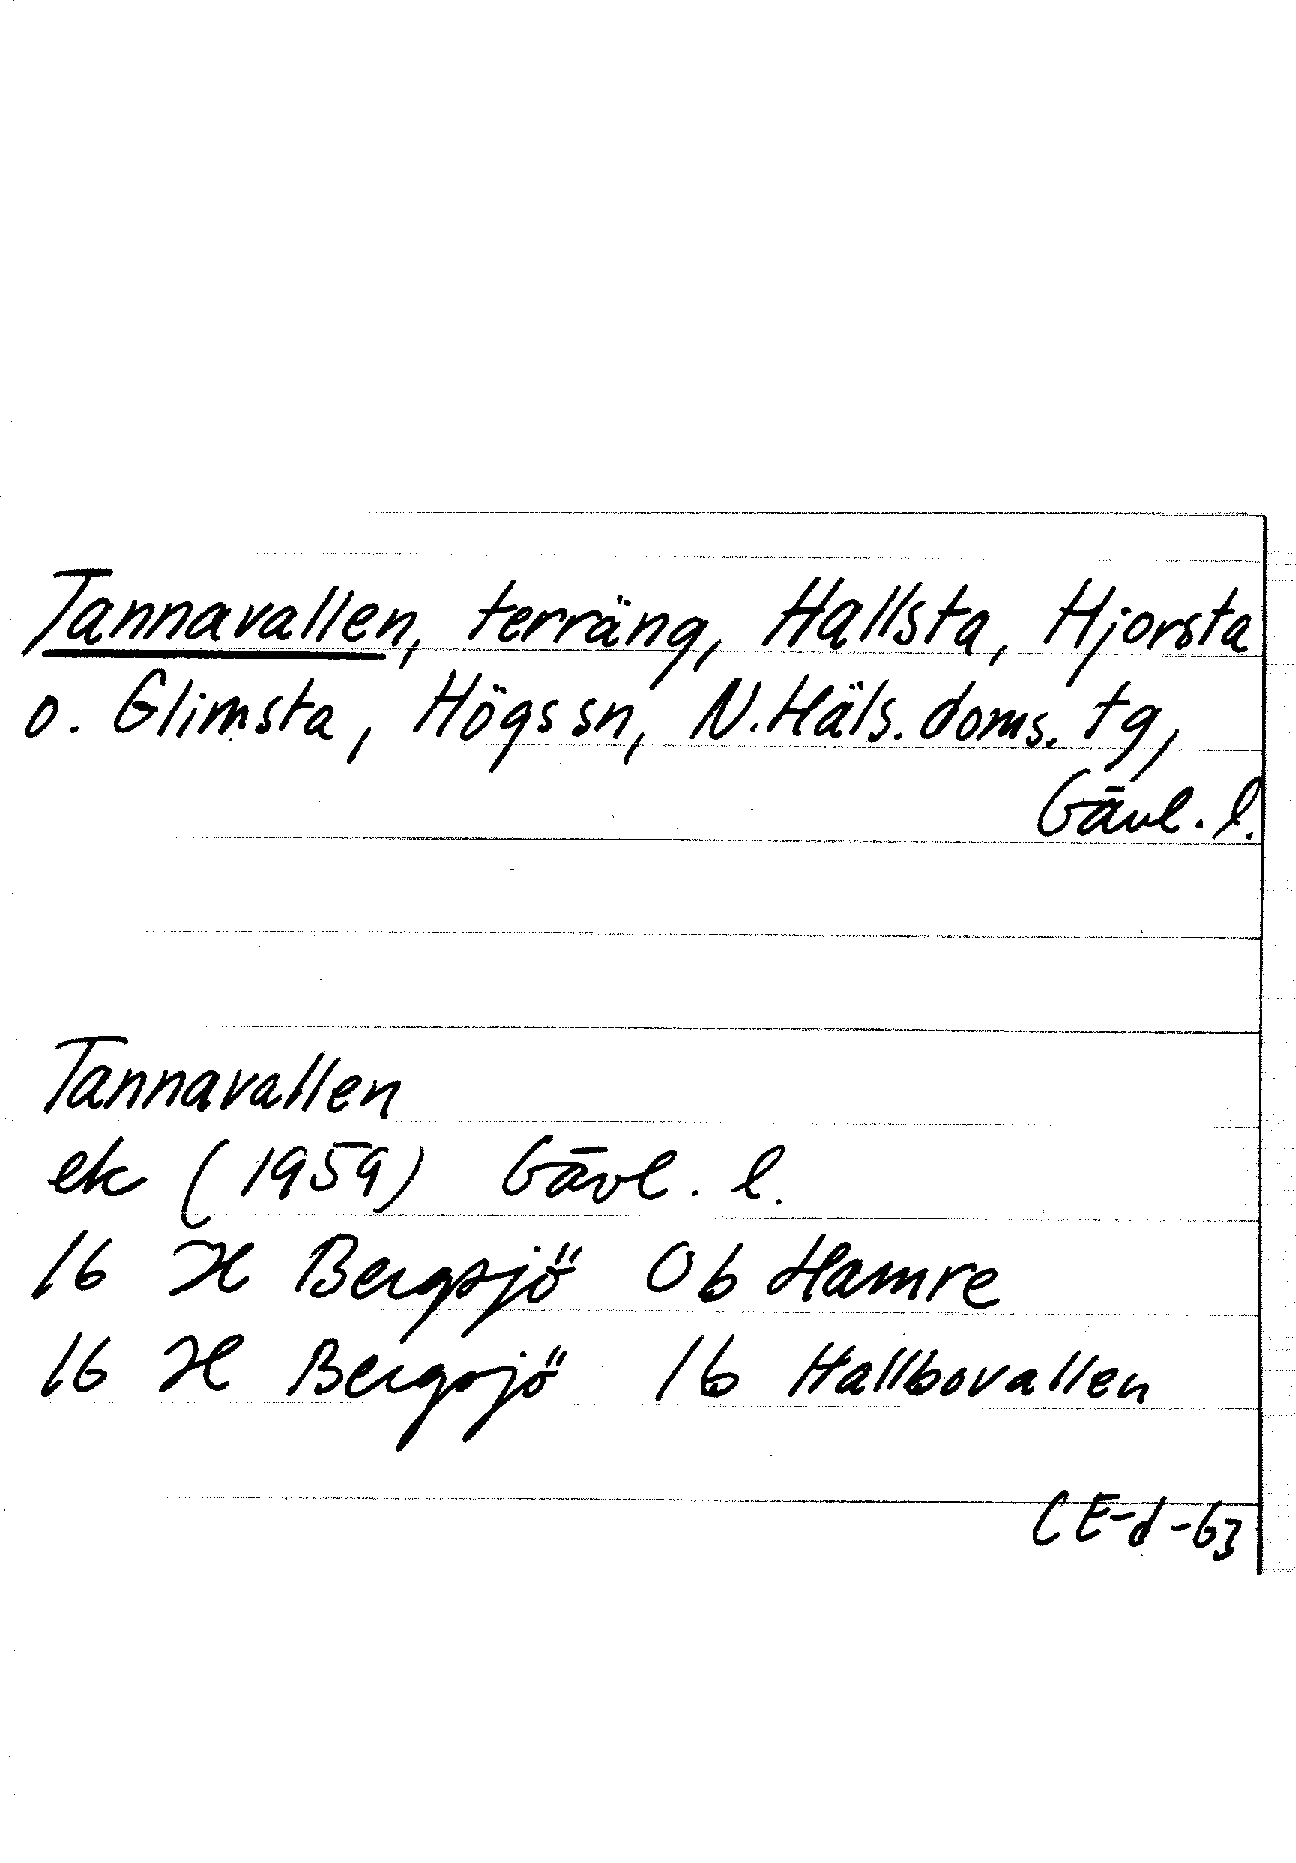 Tannavallen, terräng, Hallsta, Hjorsta
o. Glimsta, Högs sn, N. Häls. doms. tg,
Gävl. l.
Tannavallen
ek (1959) Gävl. l.
16 H Bergsjö 0b Hamre
16 H Bergsjö 1b Hallbovallen
CE-d-63